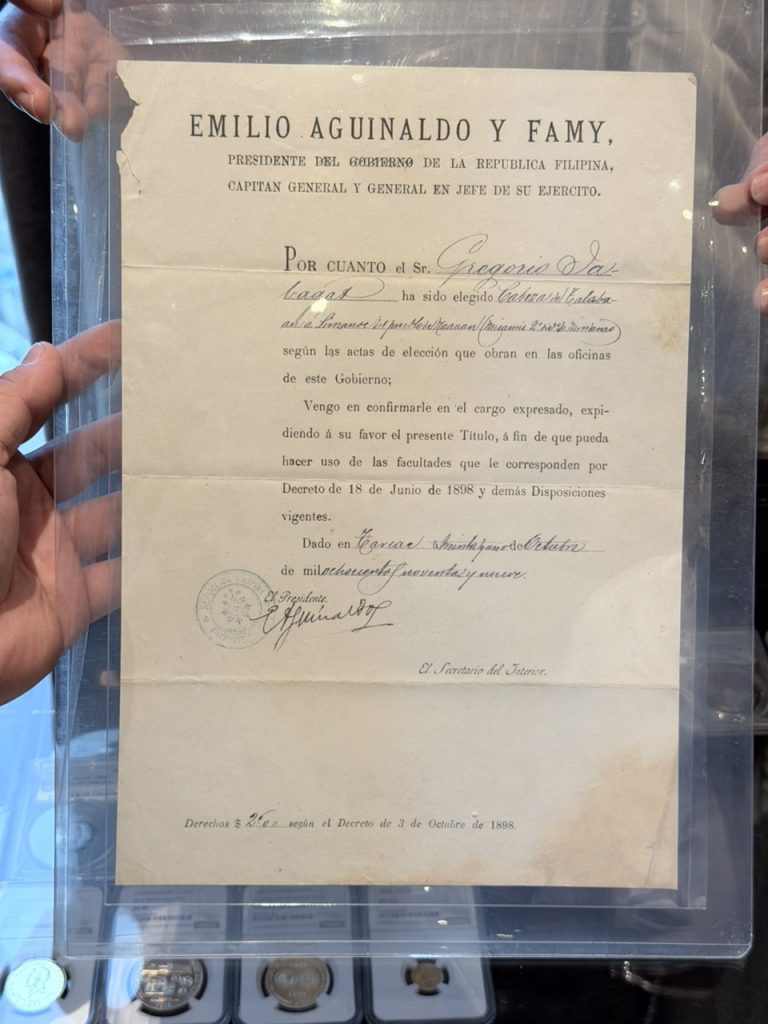 EMILIO AGUINALDO Y FAMY,
PRESIDENTE DEL GOBIERNO DE LA REPUBLICA FILIPINA,
CAPITAN GENERAL Y GENERAL EN JEFE DE SU EJERCITO.
POR CUANTO el Sr. Gregorio Da-
bagat ha sido elegido Cabeza de
del pueblo de (Misamis 2º
según las actas de elección que obran en las oficinas
de este Gobierno;
Vengo en confirmarle en el cargo expresado, expi-
diendo á su favor el presente Título, á fin de que pueda
hacer uso de las facultades que le corresponden por
Decreto de 18 de Junio de 1898 y demás Disposiciones
vigentes.
Dado en Tarlac á treinta y uno de Octubre
de mil ochocientos noventa y nueve.
El Presidente,
EAguinaldo
REPUBLICA FILIPINA
El Secretario del Interior.
Derechos $ 2'00 según el Decreto de 3 de Octubre de 1898.